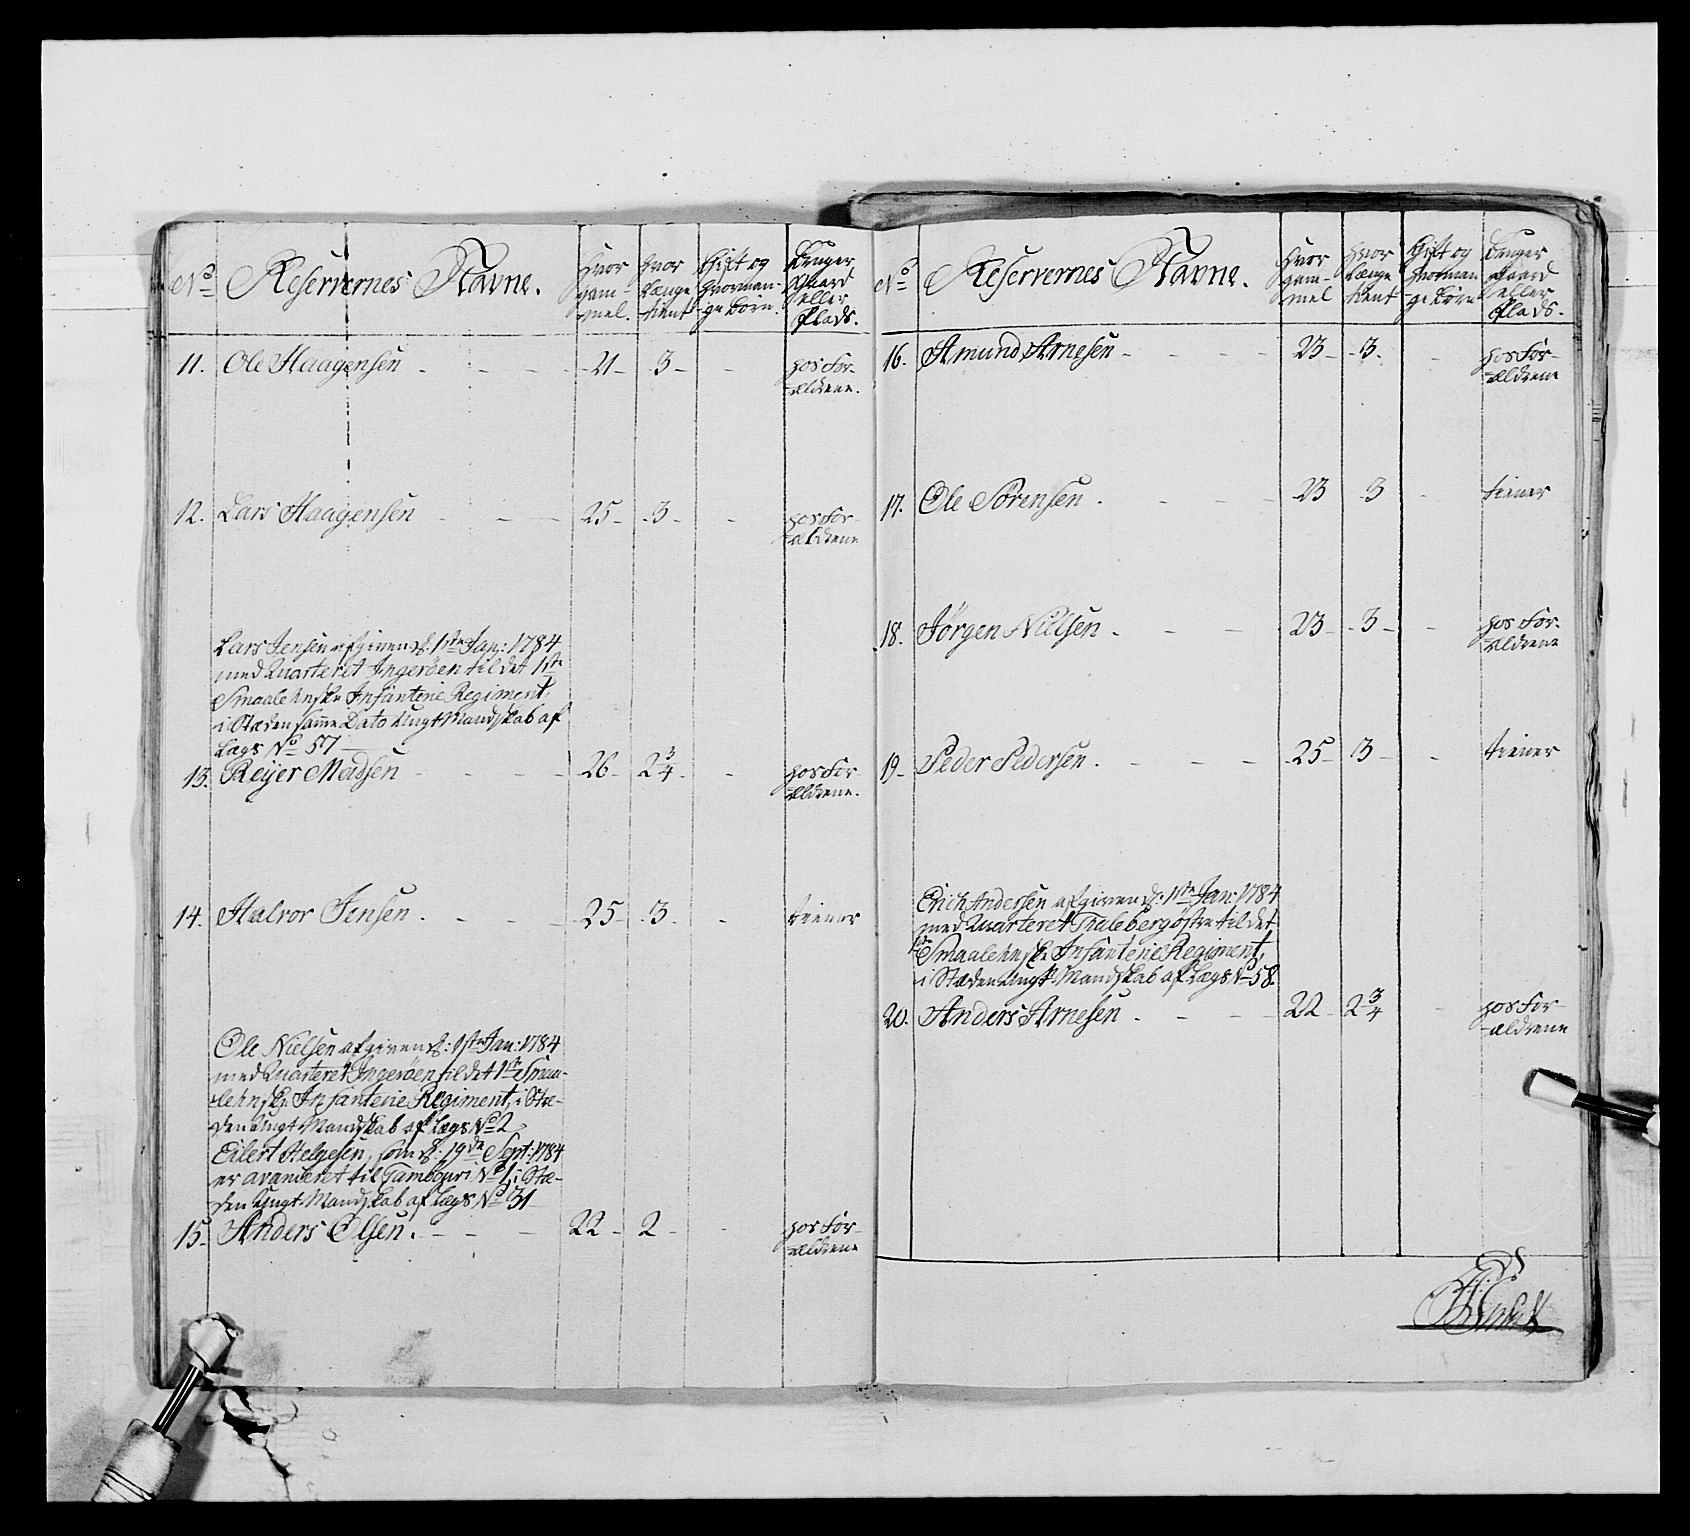 No Reservernes Navne. Hvor gam- mel. hvor længe tient Gift og hvorman- ge børn. Bruger Gaard eller Plads.
11. Ole Haagensen - - - 21 - 3 - - hos For-
ældrene.
12. Lars Haagensen - - - 25 - 3 - - hos For-
ældrene
Lars Jensen afgiven d: 1ste Jan: 1784
med Quarteret Ingerøen til det 1ste
Smaalehnske Infanterie Regiment,
i Stæden samme Dato Ungt Mandskab af
Lægs No 57 -
13. Reijer Madsen - - - 26 - 2 3/4 - - hos For-
ældrene.
14. Halvor Jensen. - - - 25 - 3 - - tiener
Ole Nielsen afgiven d: 1ste Jan: 1784
med Quarteret Ingerøen til det 1ste Smaa-
lehnske Infanterie Regiment, i Stæ-
den Ungt Mandskab af Lægs No 2
Eilert Helgesen, som d: 19de Sept: 1784
er avanceret til Tambour No 1, i Stæ-
den Ungt Mandskab af Lægs No 31
15. Anders Olsen. - - - 22 - 2 - - hos For-
ældrene
No Reservernes Navne. Hvor gam- mel hvor længe tient Gift og hvorman- ge børn Bruger Gaard eller Plads.
16. Amund Arnesen - - - 23 - 3 - - hos For-
ældrene
17. Ole Sørensen. - - - 23 - 3 - tiener
18. Jørgen Nielsen. - - - 23 - 3 - - hos For-
ældrene
19 - Peder Pedersen. - - - 25 - 3 - - tiener
Erich Andersen afgiven d: 1ste Jan: 1784
med Quarteret Thaleberg østre til det
1ste Smaalehnske Infanterie Regiment,
i Stæden Ungt Mandskab af Lægs No 58.
20. Anders Arnesen - - - 22 - 2 3/4 - hos For-
ældrene